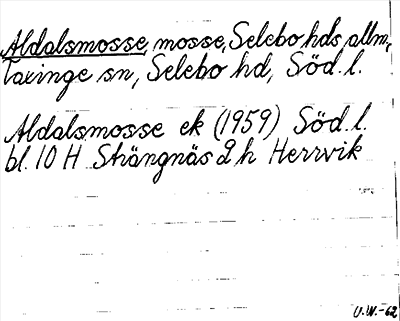 Aldalsmosse, mosse, Selebo hds allm,
Taxinge sn, Selebo hd, Söd. l.
Aldalsmosse ek (1959) Söd. l.
bl. 10 H Strängnäs 2 h Herrvik
U.W.-62